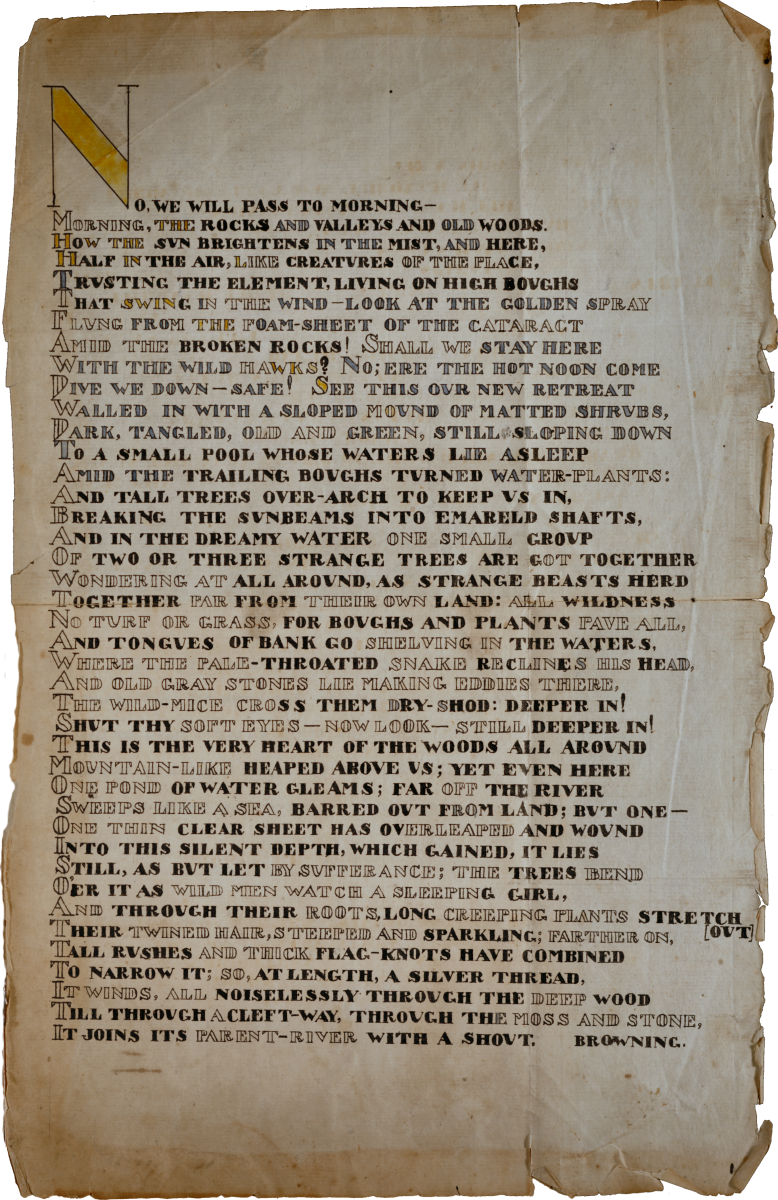 NO, WE WILL PASS TO MORNING—
MORNING, THE ROCKS AND VALLEYS AND OLD WOODS.
HOW THE SVN BRIGHTENS IN THE MIST, AND HERE,
HALF IN THE AIR, LIKE CREATVRES OF THE PLACE,
TRVSTING THE ELEMENT, LIVING ON HIGH BOVGHS
THAT SWING IN THE WIND—LOOK AT THE GOLDEN SPRAY
FLVNG FROM THE FOAM-SHEET OF THE CATARACT
AMID THE BROKEN ROCKS! SHALL WE STAY HERE
WITH THE WILD HAWKS? NO; ERE THE HOT NOON COME
DIVE WE DOWN—SAFE! SEE THIS OVR NEW RETREAT
WALLED IN WITH A SLOPED MOVND OF MATTED SHRVBS,
DARK, TANGLED, OLD AND GREEN, STILL SLOPING DOWN
TO A SMALL POOL WHOSE WATERS LIE ASLEEP
AMID THE TRAILING BOVGHS TVRNED WATER-PLANTS:
AND TALL TREES OVER-ARCH TO KEEP VS IN,
BREAKING THE SVNBEAMS INTO EMARELD SHAFTS,
AND IN THE DREAMY WATER ONE SMALL GROVP
OF TWO OR THREE STRANGE TREES ARE GOT TOGETHER
WONDERING AT ALL AROVND, AS STRANGE BEASTS HERD
TOGETHER FAR FROM THEIR OWN LAND: ALL WILDNESS
NO TURF OR GRASS, FOR BOVGHS AND PLANTS PAVE ALL,
AND TONGVES OF BANK GO SHELVING IN THE WATERS,
WHERE THE PALE-THROATED SNAKE RECLINES HIS HEAD,
AND OLD GRAY STONES LIE MAKING EDDIES THERE,
THE WILD-MICE CROSS THEM DRY-SHOD: DEEPER IN!
SHVT THY SOFT EYES—NOW LOOK—STILL DEEPER IN!
THIS IS THE VERY HEART OF THE WOODS ALL AROVND
MOUNTAIN-LIKE HEAPED ABOVE VS; YET EVEN HERE
ONE POND OF WATER GLEAMS; FAR OFF THE RIVER
SWEEPS LIKE A SEA, BARRED OVT FROM LAND; BVT ONE—
ONE THIN CLEAR SHEET HAS OVERLEAPED AND WOVND
INTO THIS SILENT DEPTH, WHICH GAINED, IT LIES
STILL, AS BVT LET BY SUFFERANCE; THE TREES BEND
O'ER IT AS WILD MEN WATCH A SLEEPING GIRL,
AND THROVGH THEIR ROOTS, LONG CREEPING PLANTS STRETCH
[OVT]
THEIR TWINED HAIR, STEEPED AND SPARKLING; FARTHER ON,
TALL RVSHES AND THICK FLAG-KNOTS HAVE COMBINED
TO NARROW IT; SO, AT LENGTH, A SILVER THREAD,
IT WINDS, ALL NOISELESSLY THROVGH THE DEEP WOOD
TILL THROVGH A CLEFT-WAY, THROVGH THE MOSS AND STONE,
IT JOINS ITS PARENT-RIVER WITH A SHOVT. BROWNING.